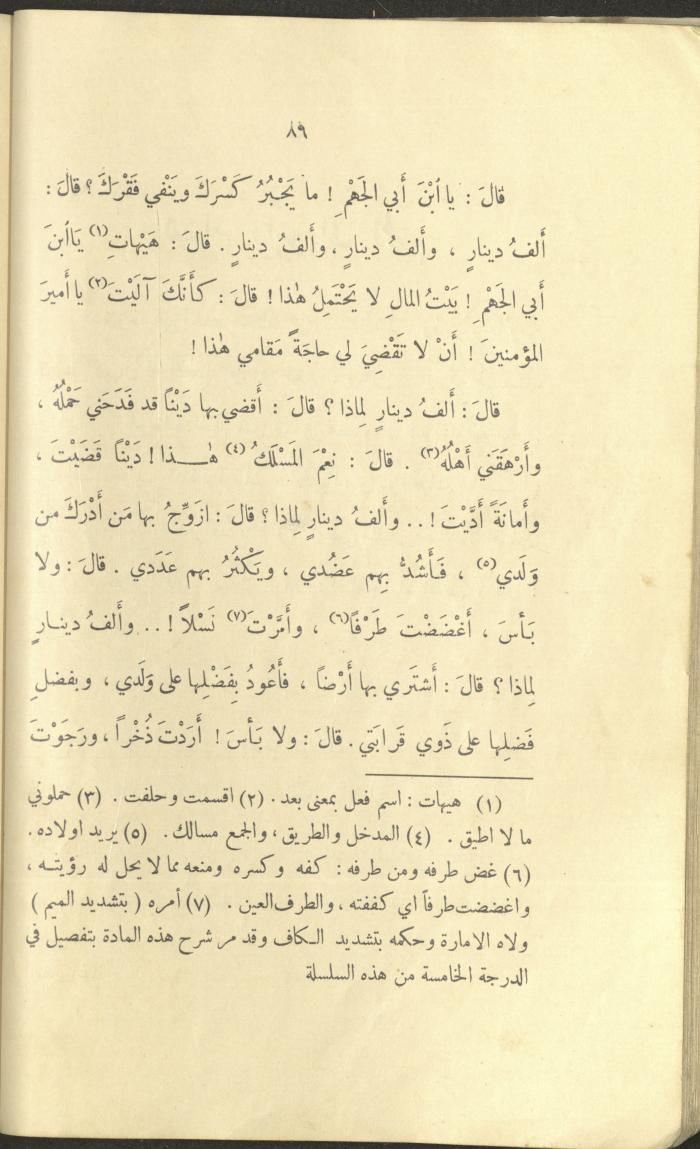 ٨٩
قالَ : يا ٱبْنَ أَبي الجَهْمِ ! ما يَجْبُرُ كَسْرَكَ ويَنْفي فَقْرَكَ ؟ قالَ :
أَلفُ دينارٍ ، وأَلفُ دينارٍ ، وأَلفُ دينارٍ . قالَ : هَيْهاتِ(١) يَاٱبنَ
أَبي الجَهْمِ ! بَيْتُ المالِ لا يَحْتَمِلُ هٰذا ! قالَ : كأَنَّكَ آلَيْتَ(٢) يا أَميرَ
المؤمنينَ ! أَنْ لا تَقْضِيَ لي حاجَةً مَقامي هٰذا !
قالَ : أَلفُ دينارٍ لِماذا ؟ قالَ : أَقضي بها دَيْنًا قد فَدَحَني حَمْلُهُ ،
وأَرْهَقَني أَهْلُهُ(٣) . قالَ : نِعْمَ المَسْلَكُ(٤) هٰـــذا ! دَيْنًا قَضَيْتَ ،
وأَمانَةً أَدَّيْتَ ! . . وأَلفُ دينارٍ لِماذا ؟ قالَ : ازَوِّجُ بها مَن أَدْرَكَ من
وَلَدي(٥) ، فَأَشُدُّ بِهم عَضُدي ، ويَكْثُرُ بهم عَدَدي . قالَ : ولا
بَأسَ ، أَغْضَضْتَ طَرْفًا(٦) ، وأَمَّرْتَ(٧) نَسْلاً ! . . وأَلفُ دينـارٍ
لِماذا ؟ قالَ : أَشتَري بها أَرْضاً ، فأَعُودُ بِفَضْلِها على وَلَدي ، وبفضلِ
فَضلِها على ذَوي قَرابَتي . قالَ : ولا بَأسَ ! أَرَدْتَ ذُخْراً ، ورَجَوْتَ
(١) هيهات : اسم فعل بمعنى بعد . (٢) اقسمت وحلفت . (٣) حملوني
ما لا اطيق . (٤) المدخل والطريق ، والجمع مسالك . (٥) يريد اولاده .
(٦) غض طرفه ومن طرفه : كفه وكسره ومنعه مما لا يحل له رؤيتـه ،
واغضضت طرفاً اي كففته ، والطرف العين . (٧) أمره ( بتشديد الميم )
ولاه الامارة وحكمه بتشديد الـكاف وقد مر شرح هذه المادة بتفصيل في
الدرجة الخامسة من هذه السلسلة